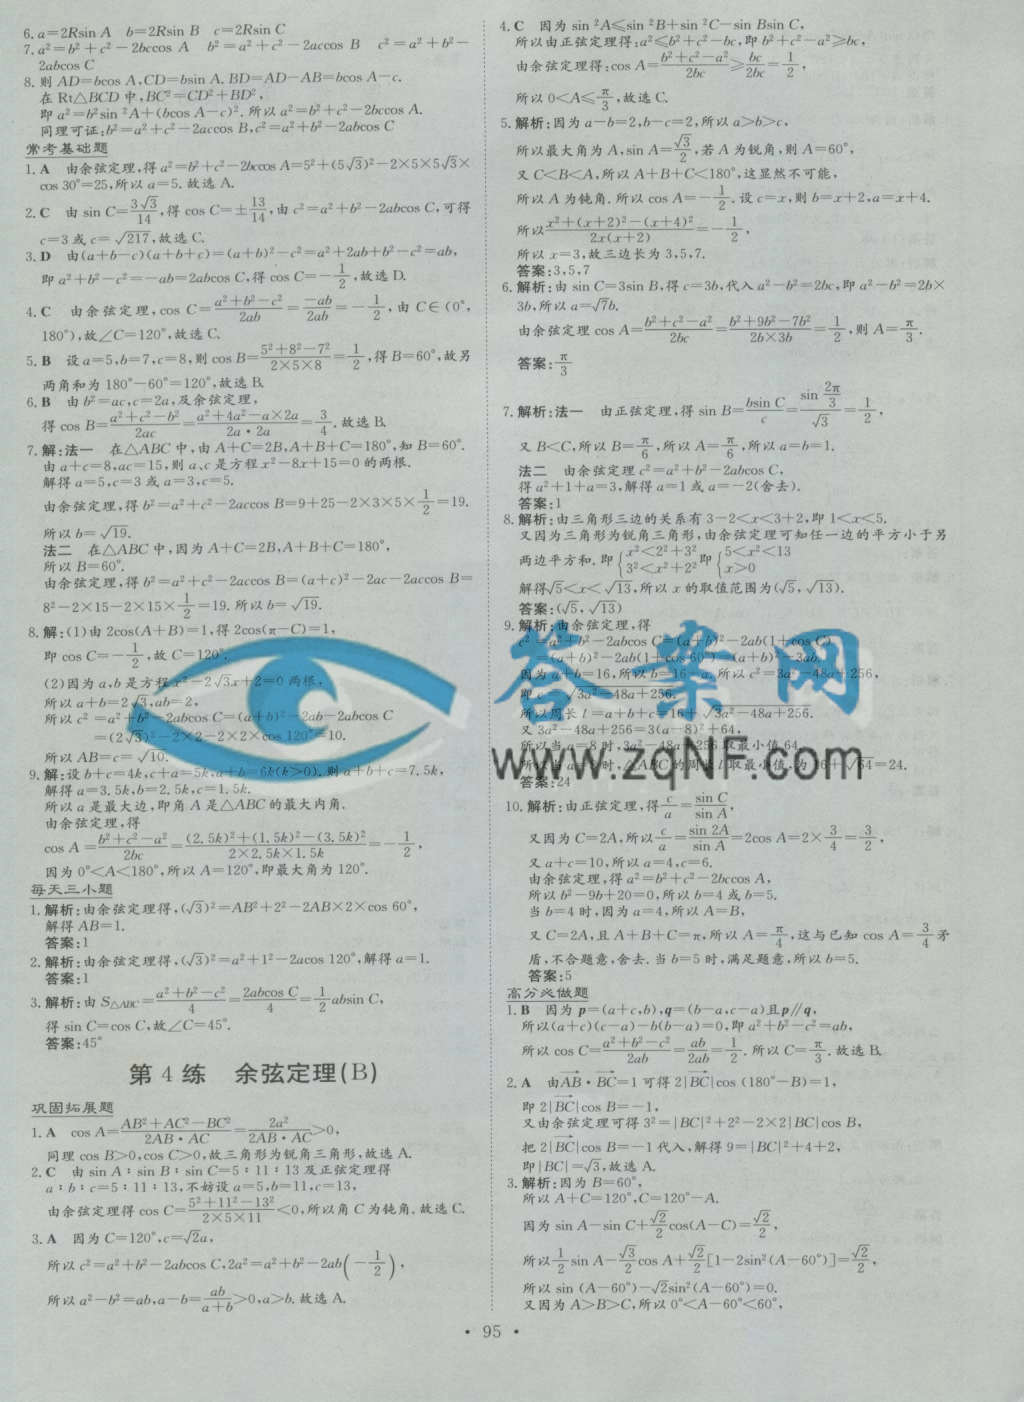 6. a=2Rsin A　b=2Rsin B　c=2Rsin C
7. a²=b²+c²-2bccos A　b²=a²+c²-2accos B　c²=a²+b²-
2abcos C
8. 则 AD=bcos A,CD=bsin A.BD=AD-AB=bcos A-c.
在 Rt△BCD 中,BC²=CD²+BD²,
即 a²=b²sin ²A+(bcos A-c)².所以 a²=b²+c²-2bccos A.
同理可证:b²=a²+c²-2accos B,c²=a²+b²-2abcos C
常考基础题
1. A　由余弦定理,得 a²=b²+c²-2bccos A=5²+(5√3)²-2×5×5√3×
cos 30°=25,所以 a=5.故选 A.
2. C　由 sin C=3√3/14,得 cos C=±13/14,由 c²=a²+b²-2abcos C,可得
c=3 或 c=√217,故选 C.
3. D　由(a+b-c)(a+b+c)=(a+b)²-c²=a²+2ab+b²-c²=ab,
即 a²+b²-c²=-ab=2abcos C,得 cos C=-1/2,故选 D.
4. C　由余弦定理, cos C=(a²+b²-c²)/2ab=-ab/2ab=-1/2,由 C∈(0°,
180°),故∠C=120°,故选 C.
5. B　设 a=5,b=7,c=8,则 cos B=(5²+8²-7²)/(2×5×8)=1/2,得 B=60°,故另
两角和为 180°-60°=120°,故选 B.
6. B　由 b²=ac,c=2a,及余弦定理,
得 cos B=(a²+c²-b²)/2ac=(a²+4a²-a×2a)/(2a·2a)=3/4.故选 B.
7. 解:法一　在△ABC 中,由 A+C=2B,A+B+C=180°,知 B=60°.
由 a+c=8,ac=15,则 a、c 是方程 x²-8x+15=0 的两根.
解得 a=5,c=3 或 a=3,c=5.
由余弦定理,得 b²=a²+c²-2accos B=9+25-2×3×5×1/2=19.
所以 b=√19.
法二　在△ABC 中,因为 A+C=2B,A+B+C=180°,
所以 B=60°.
由余弦定理,得 b²=a²+c²-2accos B=(a+c)²-2ac-2accos B=
8²-2×15-2×15×1/2=19.所以 b=√19.
8. 解:(1)由 2cos(A+B)=1,得 2cos(π-C)=1,
即 cos C=-1/2,故 C=120°.
(2)因为 a,b 是方程 x²-2√3x+2=0 两根,
所以 a+b=2√3,ab=2,
所以 c²=a²+b²-2abcos C=(a+b)²-2ab-2abcos C
=(2√3)²-2×2-2×2×cos 120°=10.
所以 AB=c=√10.
9. 解:设 b+c=4k,c+a=5k,a+b=6k(k>0).则 a+b+c=7.5k,
解得 a=3.5k,b=2.5k,c=1.5k.
所以 a 是最大边,即角 A 是△ABC 的最大内角.
由余弦定理,得
cos A=(b²+c²-a²)/2bc=((2.5k)²+(1.5k)²-(3.5k)²)/(2×2.5k×1.5k)=-1/2,
因为 0°<A<180°,所以 A=120°,即最大角为 120°.
每天三小题
1. 解析:由余弦定理得,(√3)²=AB²+2²-2AB×2×cos 60°,
解得 AB=1.
答案:1
2. 解析:由余弦定理得,(√3)²=a²+1²-2acos 120°,解得 a=1.
答案:1
3. 解析:由 S△ABC=(a²+b²-c²)/4=2abcos C/4=1/2absin C,
得 sin C=cos C,故∠C=45°.
答案:45°
第 4 练　余弦定理(B)
巩固拓展题
1. A　cos A=(AB²+AC²-BC²)/(2AB·AC)=2a²/(2AB·AC)>0,
同理 cos B>0,cos C>0,故三角形为锐角三角形,故选 A.
2. C　由 sin A∶sin B∶sin C=5∶11∶13 及正弦定理得
a∶b∶c=5∶11∶13,不妨设 a=5,b=11,c=13,
由余弦定理得 cos C=(5²+11²-13²)/(2×5×11)<0,所以角 C 为钝角.故选 C.
3. A　因为 C=120°,c=√2a,
所以 c²=a²+b²-2abcos C,2a²=a²+b²-2ab(-1/2),
所以 a²-b²=ab,a-b=ab/(a+b)>0,a>b.故选 A.
4. C　因为 sin ²A≤sin ²B+sin ²C-sin Bsin C,
所以由正弦定理得:a²≤b²+c²-bc,即 b²+c²-a²≥bc,
由余弦定理得:cos A=(b²+c²-a²)/2bc≥bc/2bc=1/2,
所以 0<A≤π/3,故选 C.
5. 解析:因为 a-b=2,b-c=2,所以 a>b>c,
所以最大角为 A,sin A=√3/2,若 A 为锐角,则 A=60°,
又 C<B<A,所以 A+B+C<180°,这显然不可能,
所以 A 为钝角.所以 cos A=-1/2.设 c=x,则 b=x+2,a=x+4.
所以(x²+(x+2)²-(x+4)²)/2x(x+2)=-1/2,
所以 x=3,故三边长为 3,5,7.
答案:3,5,7
6. 解析:由 sin C=3sin B,得 c=3b,代入 a²-b²=2bc,即 a²-b²=2b×
3b,所以 a=√7b.
由余弦定理 cos A=(b²+c²-a²)/2bc=(b²+9b²-7b²)/(2b×3b)=1/2,则 A=π/3.
答案:π/3
7. 解析:法一　由正弦定理,得 sin B=bsin C/c=sin 2π/3/√3=1/2,
又 B<C,所以 B=π/6,所以 A=π/6,所以 a=b=1.
法二　由余弦定理 c²=a²+b²-2abcos C,
得 a²+1+a=3,解得 a=1 或 a=-2(舍去).
答案:1
8. 解析:由三角形三边的关系有 3-2<x<3+2,即 1<x<5.
又因为三角形为锐角三角形,由余弦定理可知任一边的平方小于另
两边平方和.即{x²<2²+3² 3²<x²+2² 即{5<x²<13 x>0
解得√5<x<√13,所以 x 的取值范围为(√5,√13).
答案:(√5,√13)
9. 解析:由余弦定理,得
c²=a²+b²-2abcos C=(a+b)²-2ab(1+cos C)
=(a+b)²-2ab(1+cos 60°)=(a+b)²-3ab.
因为 a+b=16,所以 b=16-a.所以 c²=3a²-48a+256,
即 c=√3a²-48a+256.
所以周长 l=a+b+c=16+√3a²-48a+256.
又 3a²-48a+256=3(a-8)²+64,
所以当 a=8 时,3a²-48a+256 取最小值 64,
所以当 a=8 时,△ABC 的周长 l 取最小值,为 16+√64=24.
答案:24
10. 解析:由正弦定理,得c/a=sin C/sin A,
又因为 C=2A,所以c/a=sin 2A/sin A=2cos A=2×3/4=3/2,
又 a+c=10,所以 a=4,c=6.
由余弦定理,得 a²=b²+c²-2bccos A,
所以 b²-9b+20=0,所以 b=4 或 b=5.
当 b=4 时,因为 a=4,所以 A=B,
又 C=2A,且 A+B+C=π,所以 A=π/4,这与已知 cos A=3/4矛
盾,不合题意,舍去.当 b=5 时,满足题意,所以 b=5.
答案:5
高分必做题
1. B　因为 p=(a+c,b),q=(b-a,c-a)且 p∥q,
所以(a+c)(c-a)-b(b-a)=0,即 a²+b²-c²=ab,
所以 cos C=(a²+b²-c²)/2ab=ab/2ab=1/2.所以 C=π/3.故选 B.
2. A　由AB·BC=1 可得 2|BC|cos (180°-B)=1,
即 2|BC|cos B=-1,
又由余弦定理可得 3²=|BC|²+2²-2×2|BC|cos B,
把 2|BC|cos B=-1 代入,解得 9=|BC|²+4+2,
即|BC|=√3,故选 A.
3. 解析:因为 B=60°,
所以 A+C=120°,C=120°-A.
因为 sin A-sin C+√2/2cos(A-C)=√2/2,
所以1/2sin A-√3/2cos A+√2/2[1-2sin²(A-60°)]=√2/2,
所以 sin (A-60°)-√2sin²(A-60°)=0.
又因为 A>B>C,所以 0°<A-60°<60°,
• 95 •
答案网
www.zqNF.com